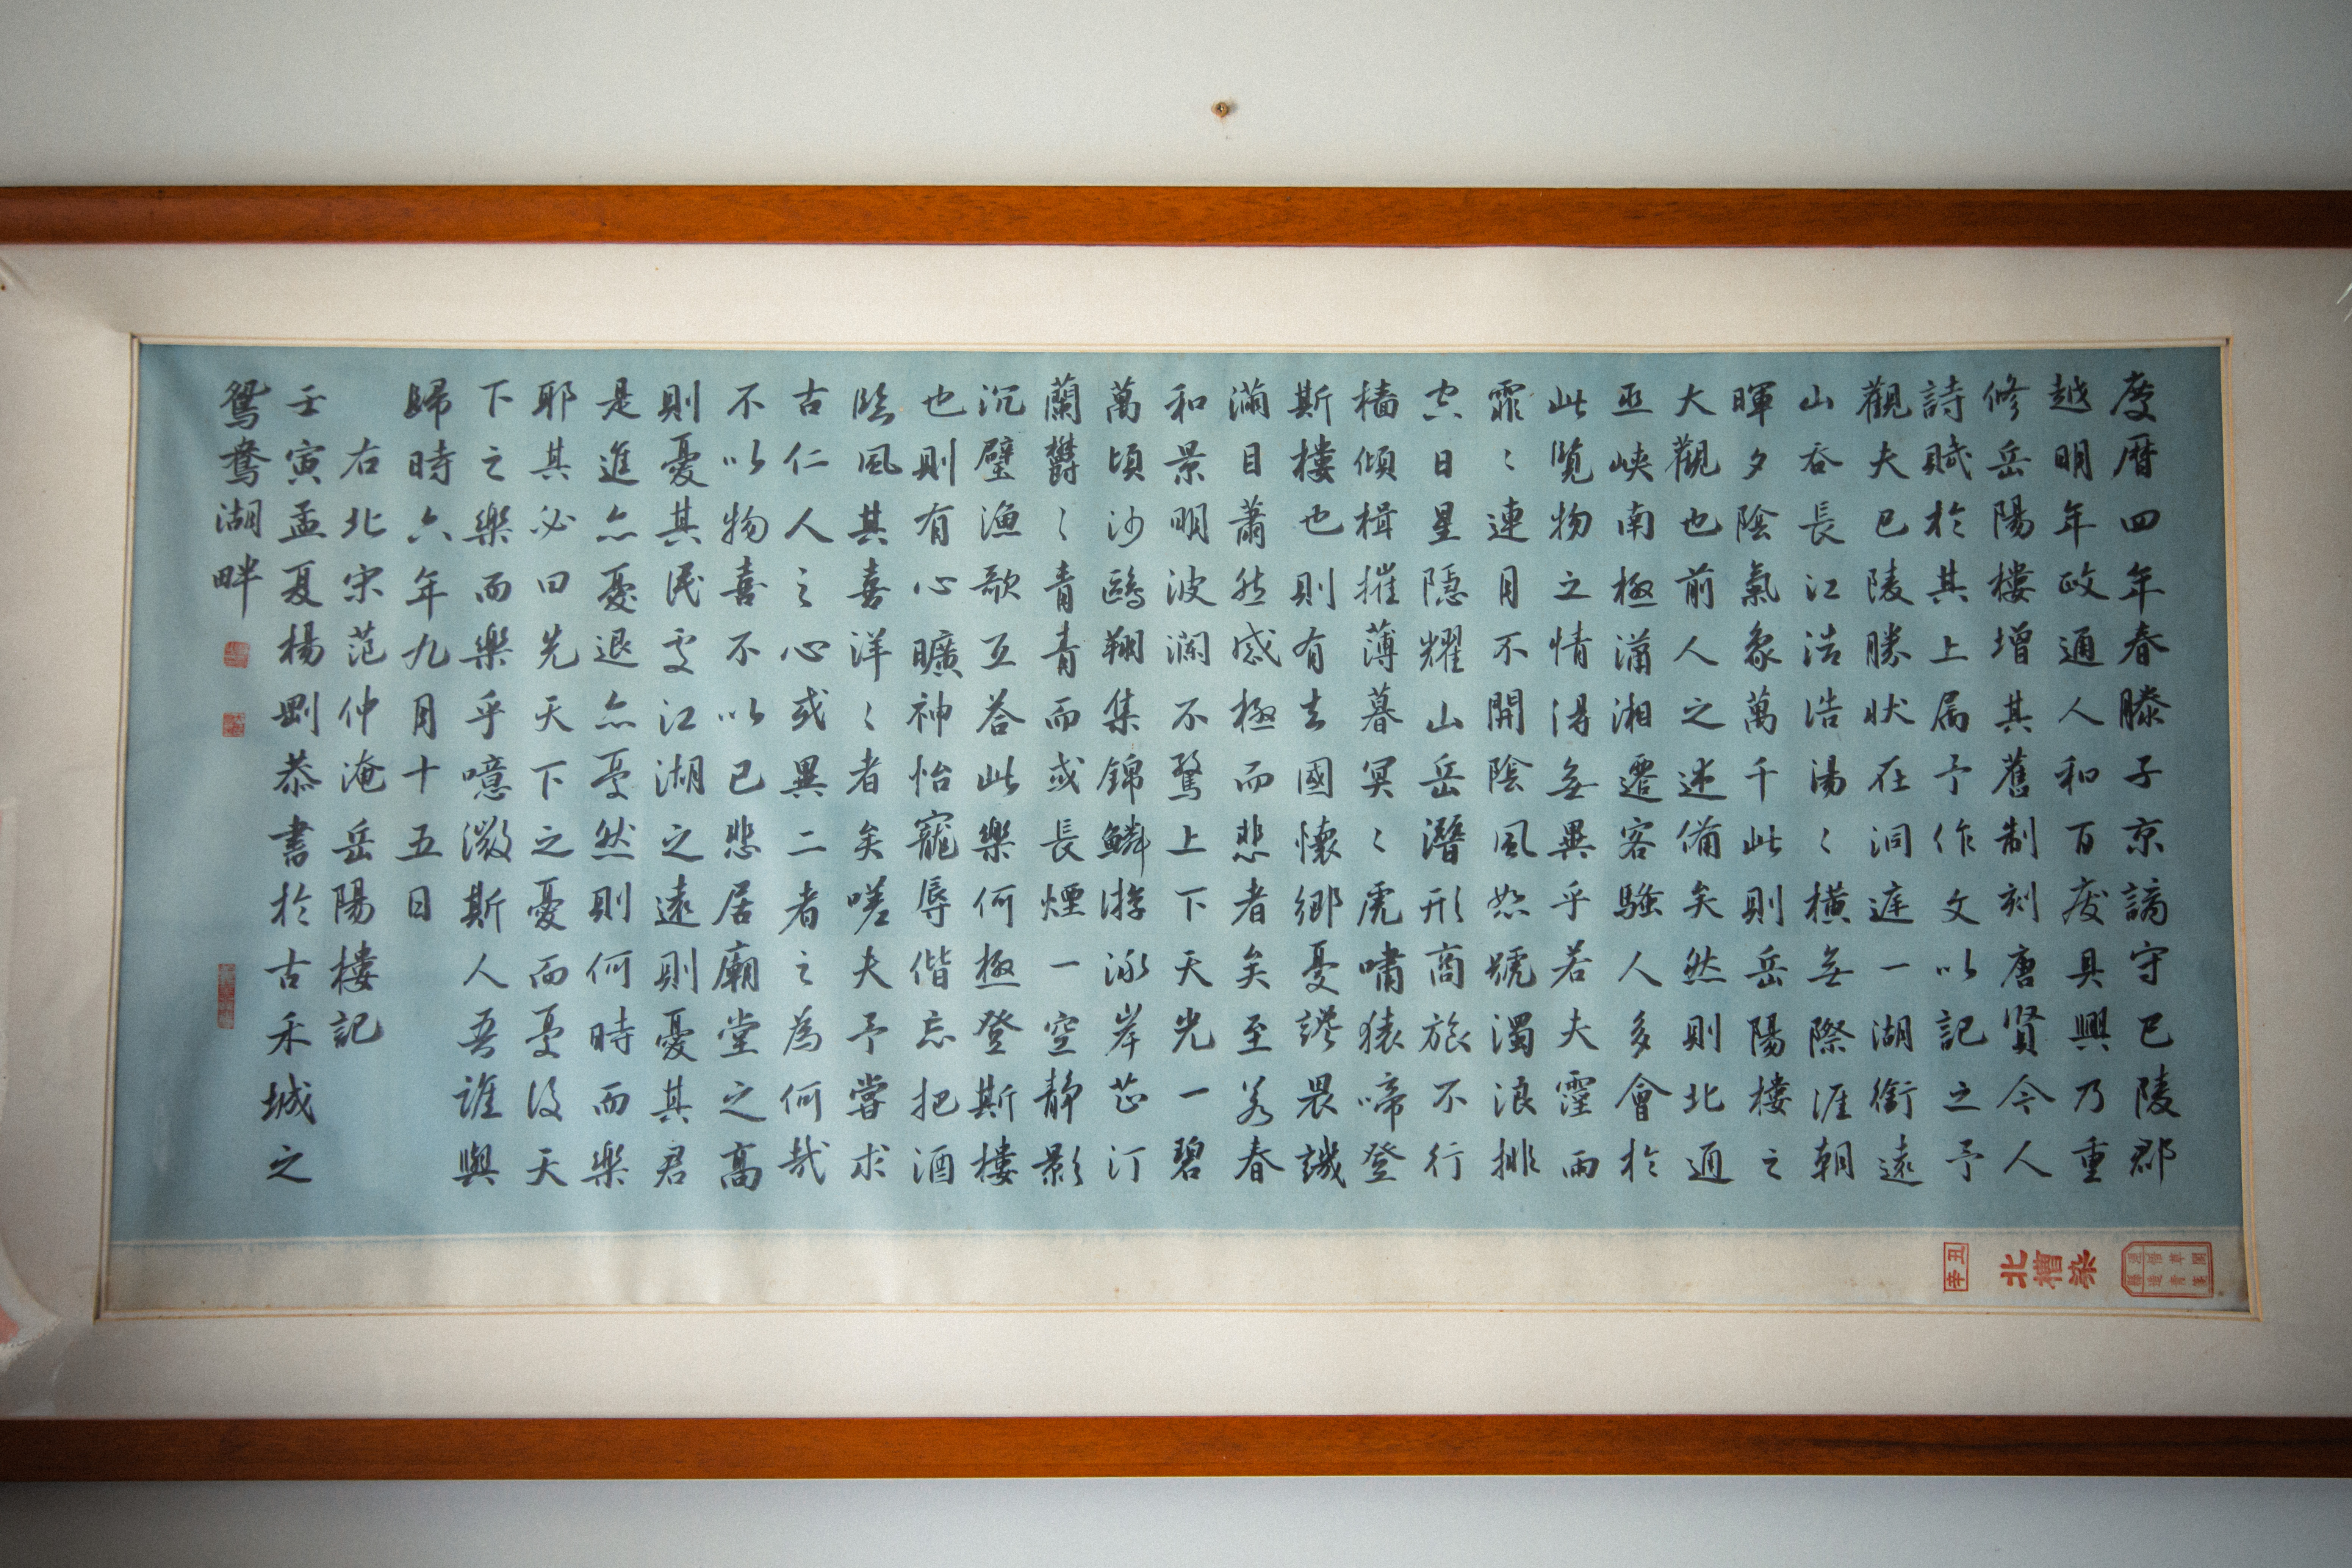 慶曆四年春滕子京謫守巴陵郡
越明年政通人和百廢具興乃重
修岳陽樓增其舊制刻唐賢今人
詩賦於其上屬予作文以記之予
觀夫巴陵勝狀在洞庭一湖銜遠
山吞長江浩浩湯〻橫無際涯朝
暉夕陰氣象萬千此則岳陽樓之
大觀也前人之述備矣然則北通
巫峽南極瀟湘遷客騷人多會於
此覽物之情得無異乎若夫霪雨
霏〻連月不開陰風怒號濁浪排
空日星隱耀山岳潛形商旅不行
檣傾楫摧薄暮冥〻虎嘯猿啼登
斯樓也則有去國懷鄉憂讒畏譏
滿目蕭然感極而悲者矣至若春
和景明波瀾不驚上下天光一碧
萬頃沙鷗翔集錦鱗游泳岸芷汀
蘭鬱〻青青而或長煙一空靜影
沉璧漁歌互答此樂何極登斯樓
也則有心曠神怡寵辱偕忘把酒
臨風其喜洋〻者矣嗟夫予嘗求
古仁人之心或異二者之為何哉
不以物喜不以己悲居廟堂之高
則憂其民處江湖之遠則憂其君
是進亦憂退亦憂然則何時而樂
耶其必曰先天下之憂而憂後天
下之樂而樂乎噫微斯人吾誰與
歸時六年九月十五日
右北宋范仲淹岳陽樓記
壬寅孟夏楊剛恭書於古禾城之
鴛鴦湖畔
辛丑
北槽染